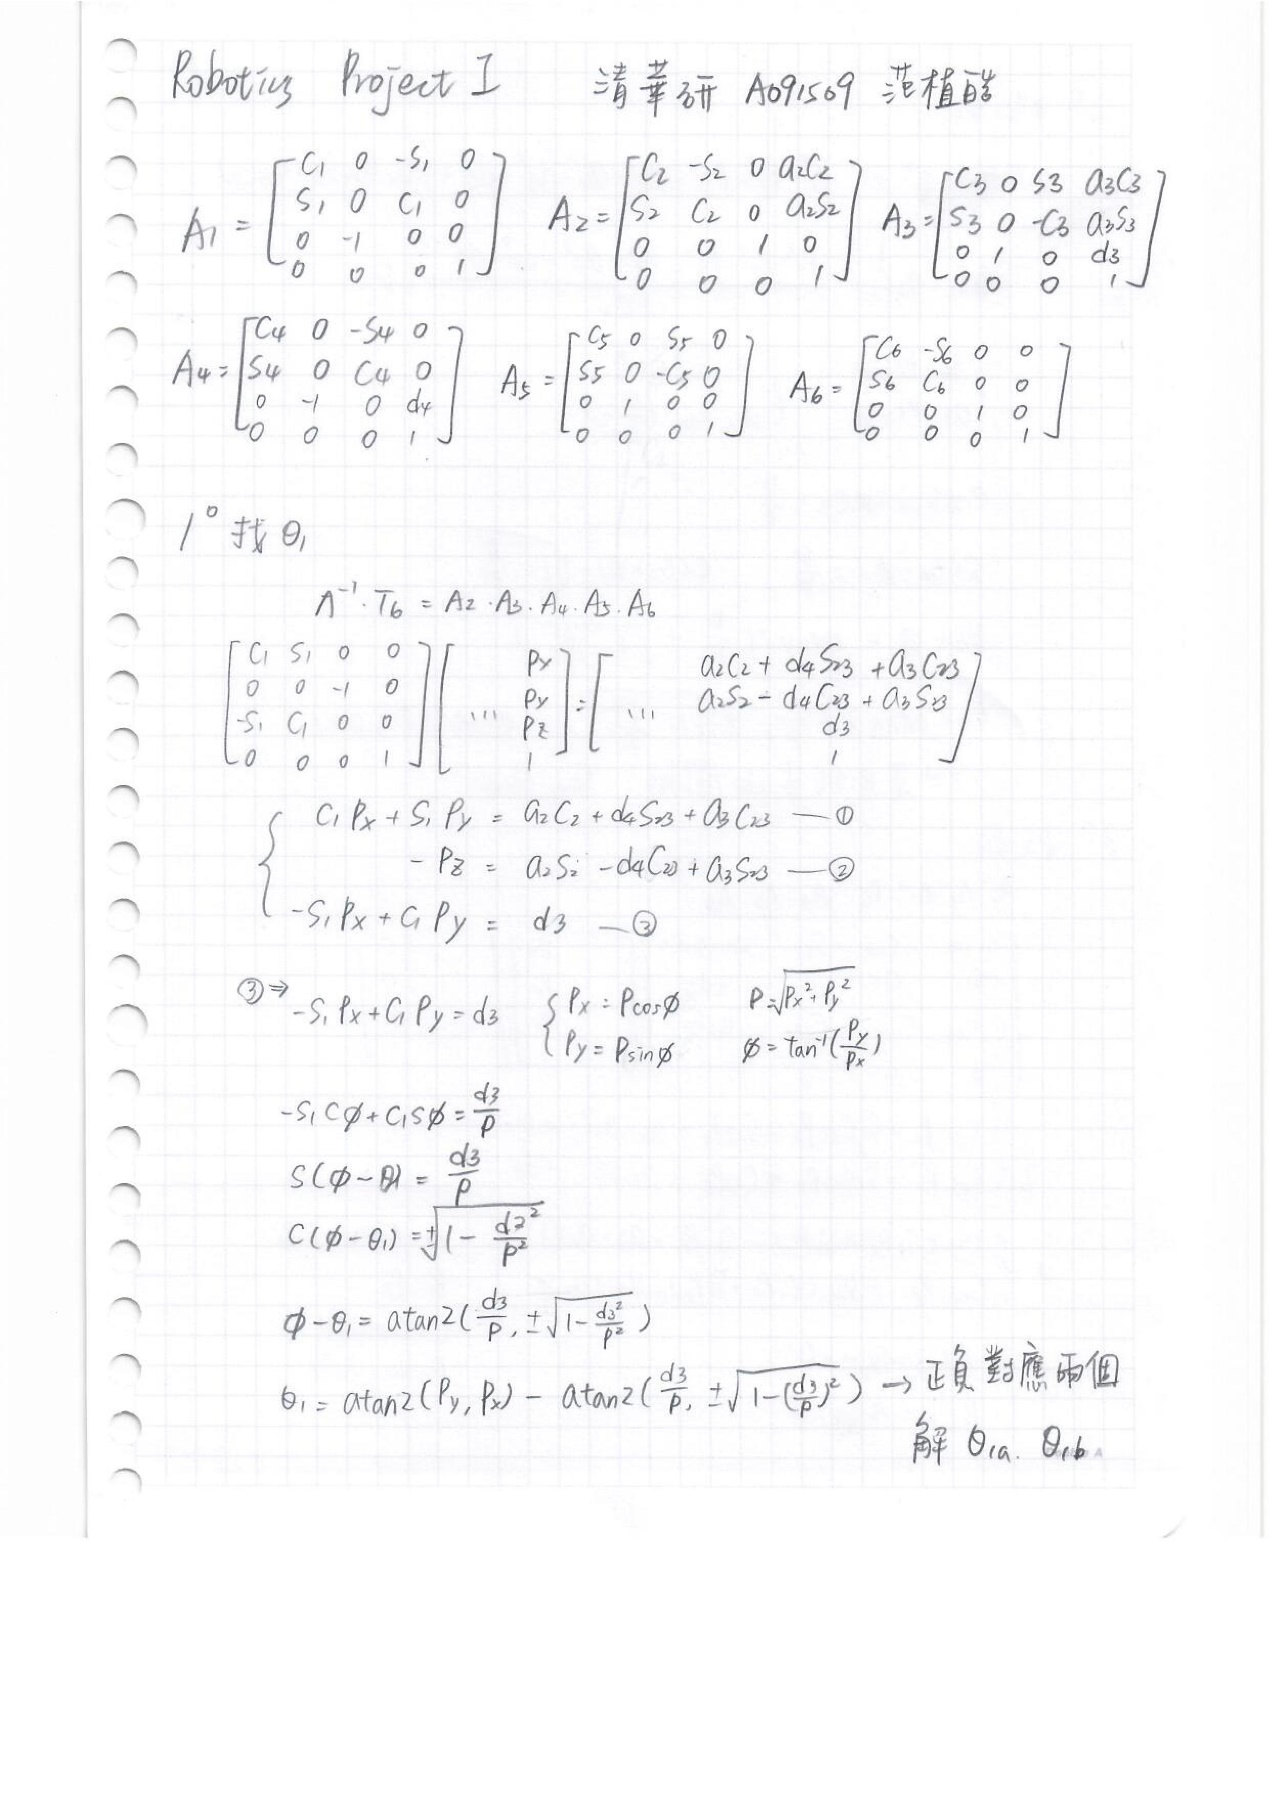 Robotics Project I 清華研 A091509 范植酷
A1 = [C1 0 -S1 0; S1 0 C1 0; 0 -1 0 0; 0 0 0 1] A2 = [C2 -S2 0 a2C2; S2 C2 0 a2S2; 0 0 1 0; 0 0 0 1] A3 = [C3 0 S3 a3C3; S3 0 -C3 a3S3; 0 1 0 d3; 0 0 0 1]
A4 = [C4 0 -S4 0; S4 0 C4 0; 0 -1 0 d4; 0 0 0 1] A5 = [C5 0 S5 0; S5 0 -C5 0; 0 1 0 0; 0 0 0 1] A6 = [C6 -S6 0 0; S6 C6 0 0; 0 0 1 0; 0 0 0 1]
1° 找 θ1
A⁻¹ · T6 = A2 · A3 · A4 · A5 · A6
[C1 S1 0 0; 0 0 -1 0; -S1 C1 0 0; 0 0 0 1] [... Px; Py; Pz; 1] = [... a2C2 + d4S23 + a3C23; a2S2 - d4C23 + a3S23; d3; 1]
C1Px + S1Py = a2C2 + d4S23 + a3C23 — ①
-Pz = a2S2 - d4C23 + a3S23 — ②
-S1Px + C1Py = d3 — ③
③⇒ -S1Px + C1Py = d3 { Px = Pcosφ P = √(Px² + Py²)
Py = Psinφ φ = tan⁻¹(Py/Px)
-S1Cφ + C1Sφ = d3/P
S(φ - θ1) = d3/P
C(φ - θ1) = ±√(1 - d3²/P²)
φ - θ1 = atan2(d3/P, ±√(1 - d3²/P²))
θ1 = atan2(Py, Px) - atan2(d3/P, ±√(1 - (d3/P)²)) → 正負對應兩個
解 θ1a. θ1b